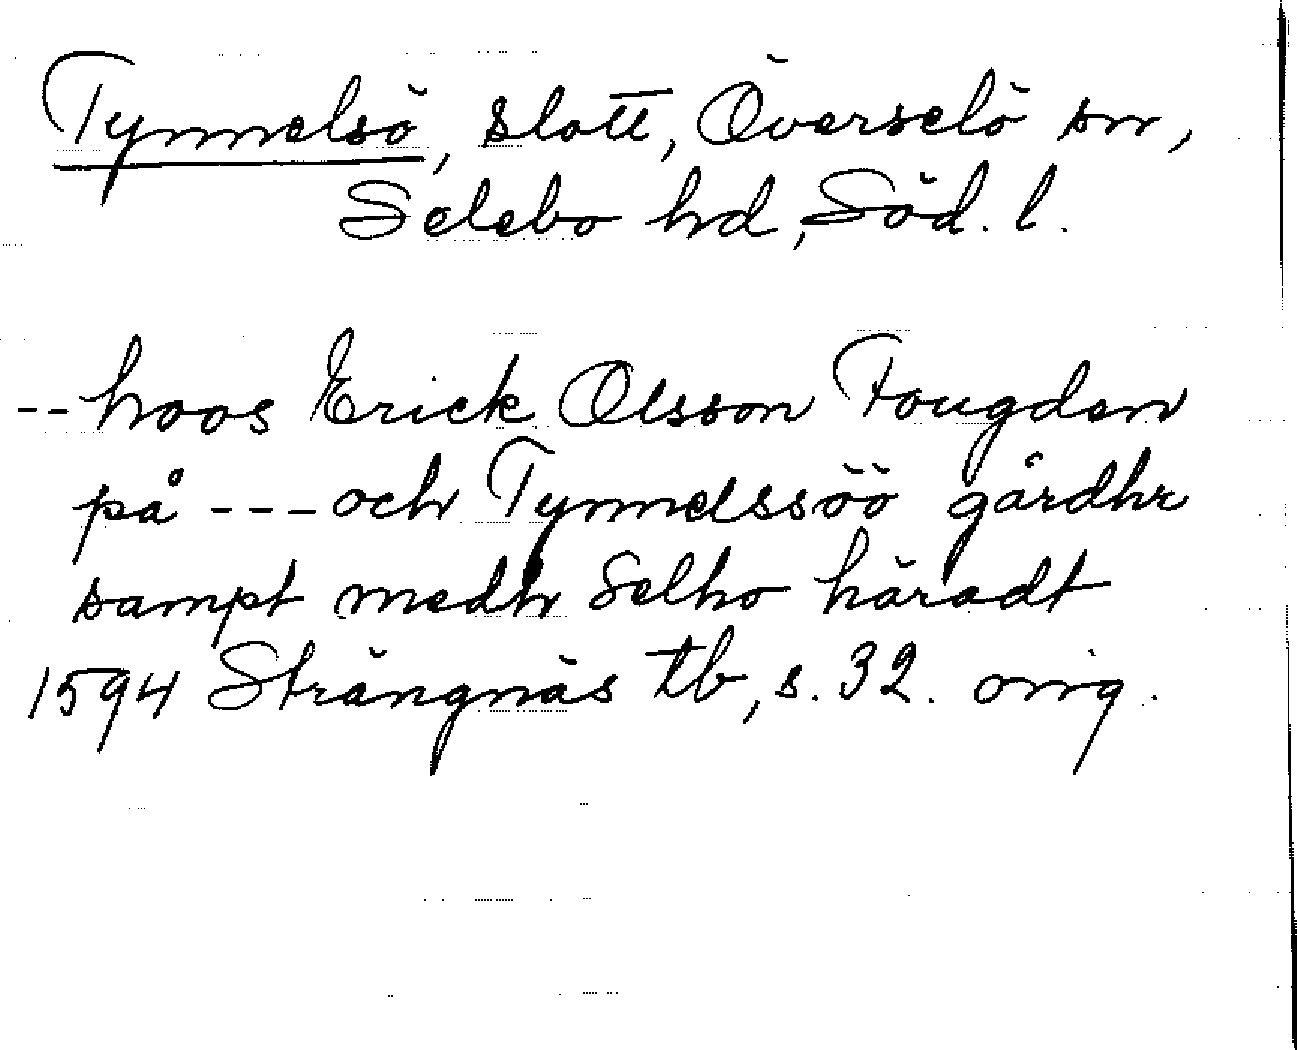 Tynnelsö, slott, Överselö sn,
Selebo hd, Söd. l.
-- hoos Erick Olsson Fougden
på --- och Tynnelssöö gårdhr
sampt medh Selbo häradt
1594 Strängnäs tb, s. 32. orig.